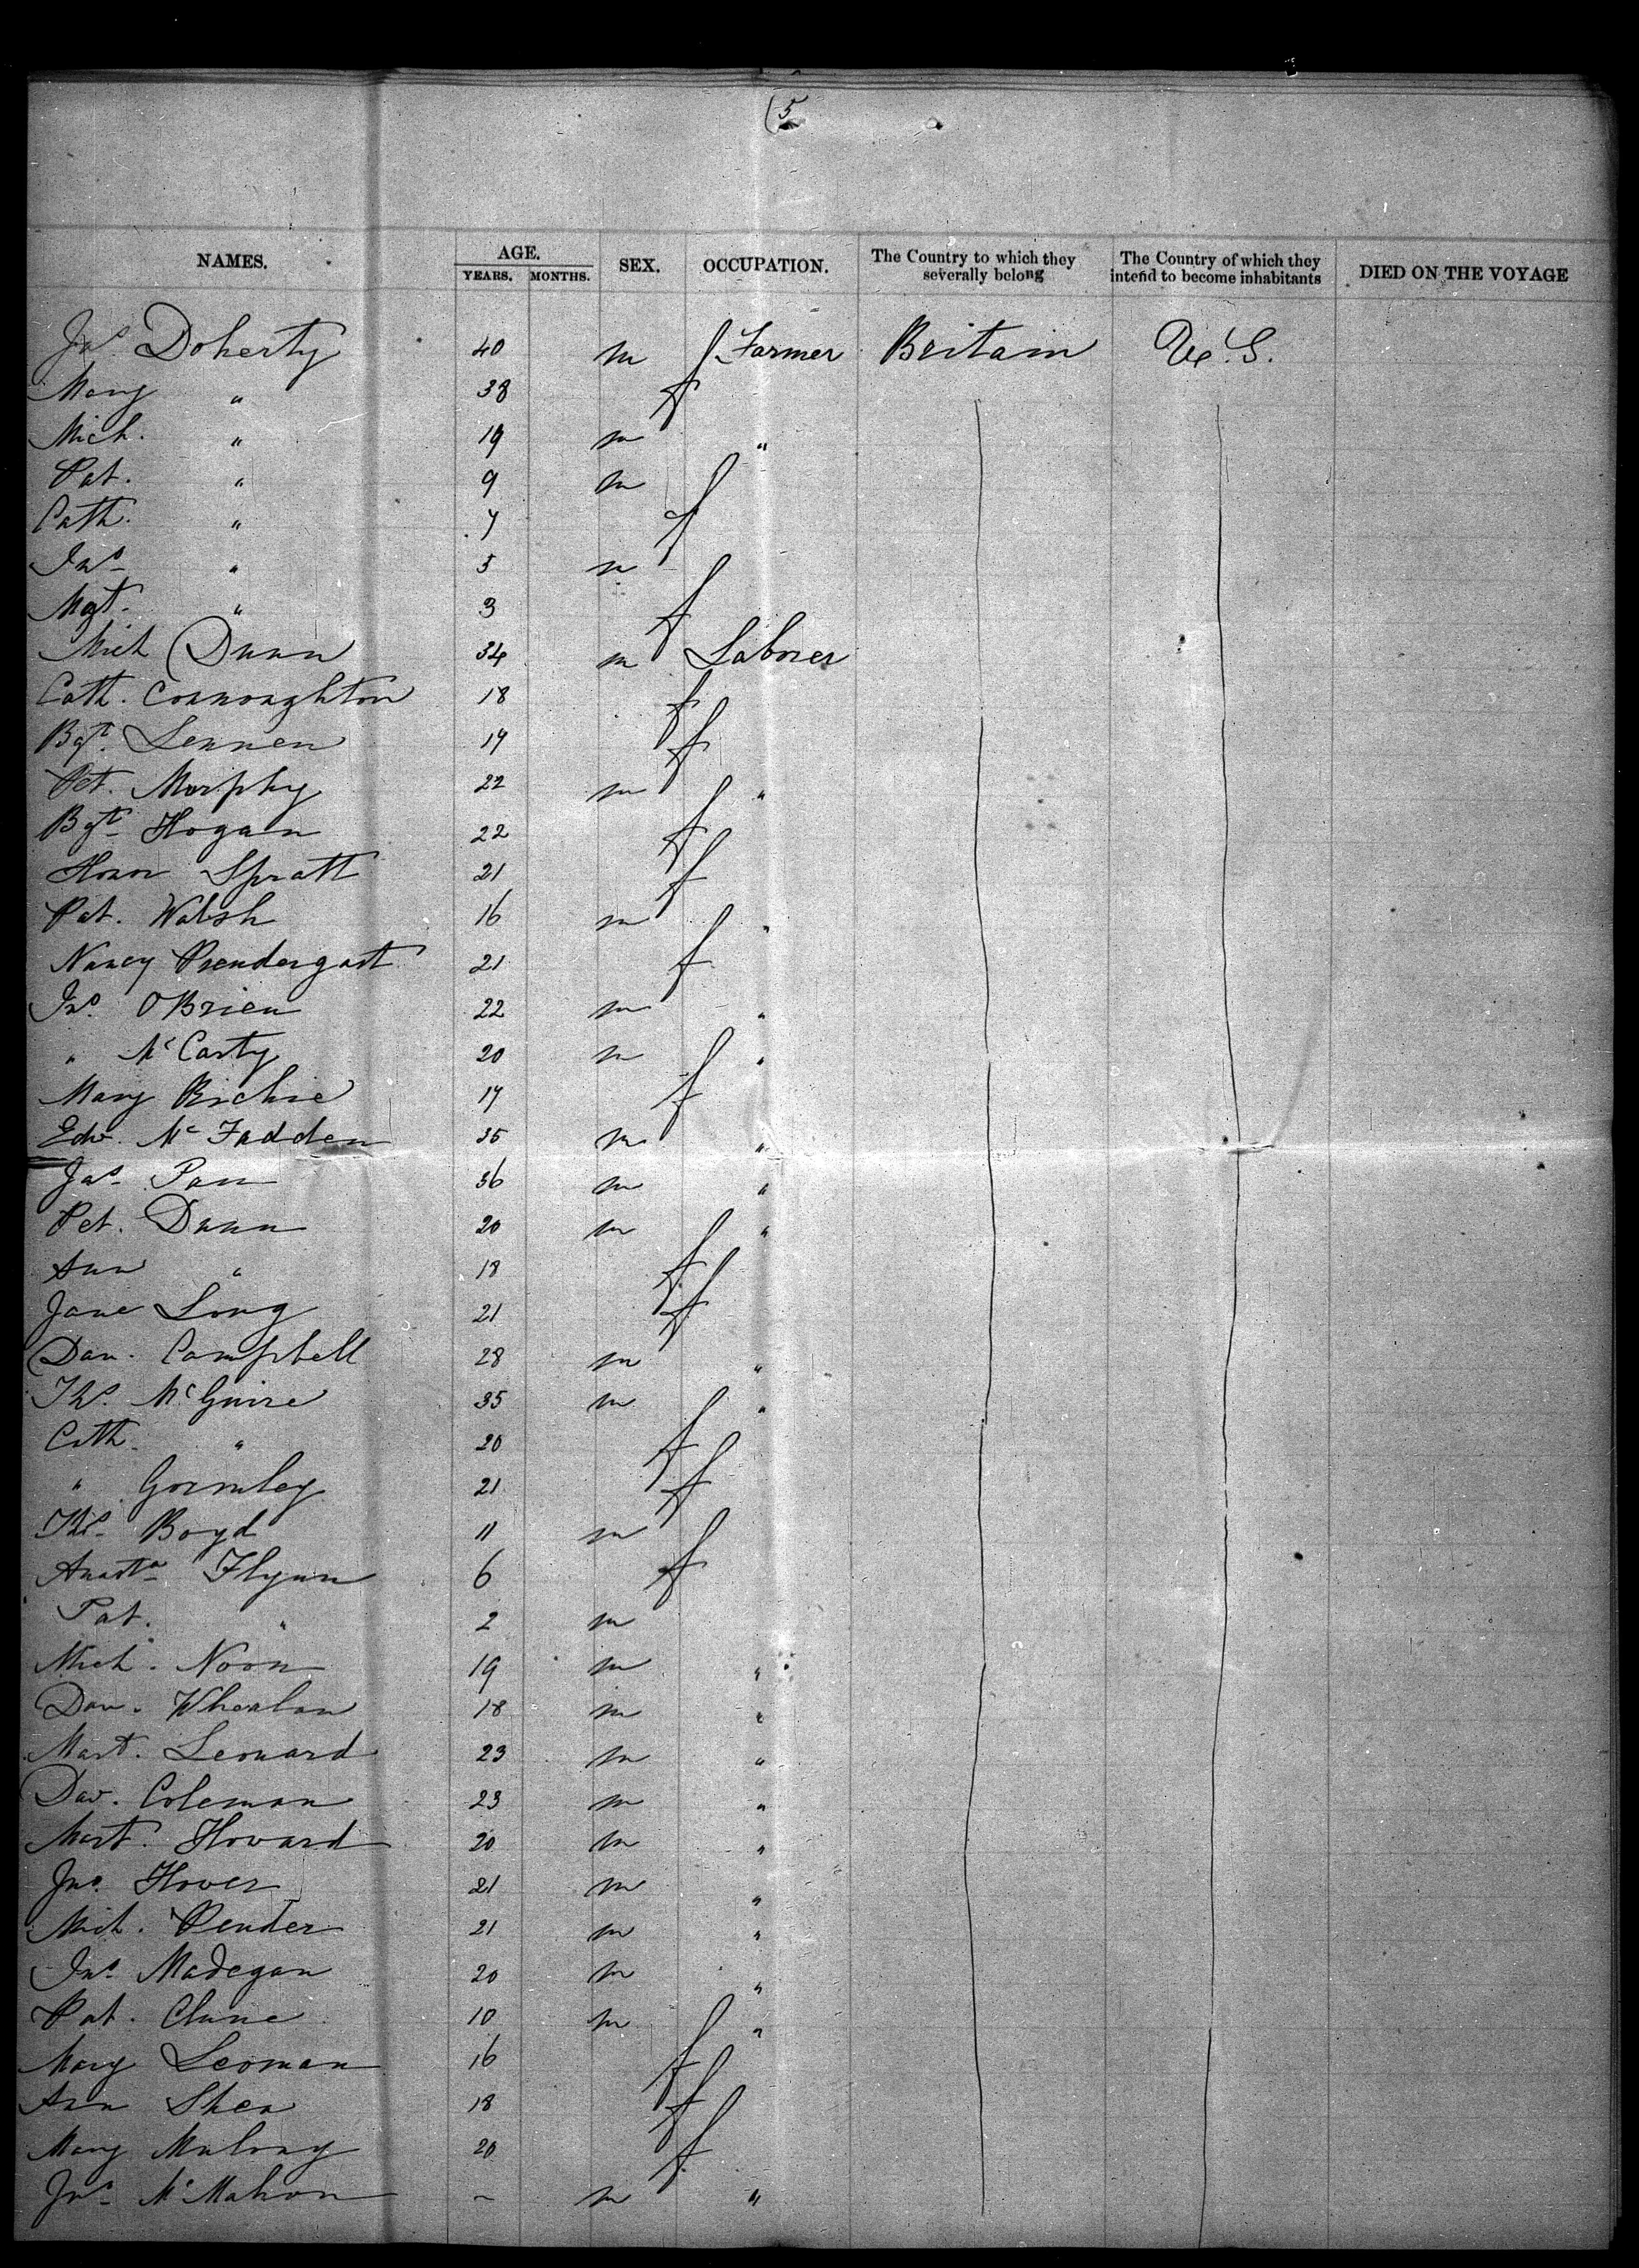 (5
NAMES. AGE. YEARS. MONTHS. SEX. OCCUPATION. The Country to which they severally belong The Country of which they intend to become inhabitants DIED ON THE VOYAGE
Jas. Doherty 40 m Farmer Britain U.S.
Mary " 38 f
Mich. " 19 m "
Pat. " 9 m
Cath. " 7 f
Jno " 5 m
Mgt. " 3 f
Mich Dunn 34 m Laborer
Cath. Connoughton 18 f
Bgt. Lennen 17 f
Pet. Murphy 22 m "
Bgt. Hogan 22 f
Honor Spratt 21 f
Pat. Walsh 16 m "
Nancy Prendergast 21 f
Jno. O'Brien 22 m "
" McCarty 20 m "
Mary Richie 17 f
Edw. McFadden 35 m "
Jas. 36 m "
Pet. Dunn 20 m "
Ann " 18 f
Jane Long 21 f
Dan. Campbell 28 m "
Ths. McGuire 35 m "
Cath. " 20 f
" Gormley 21 f
Ths. Boyd 11 m
Anasta Flynn 6 f
Pat. " 2 m
Mich. Noon 19 m "
Dan. Whealan 18 m "
Mart. Leonard 23 m "
Dav. Coleman 23 m "
Mart. Howard 20 m "
Jno. Hower 21 m "
Mich. Pender 21 m "
Jno. Madegan 20 m "
Pat. Clune 10 m "
Mary Leoman 16 f
Ann Shea 18 f
Mary Mulony 20 f
Jno. McMahon ~ m "